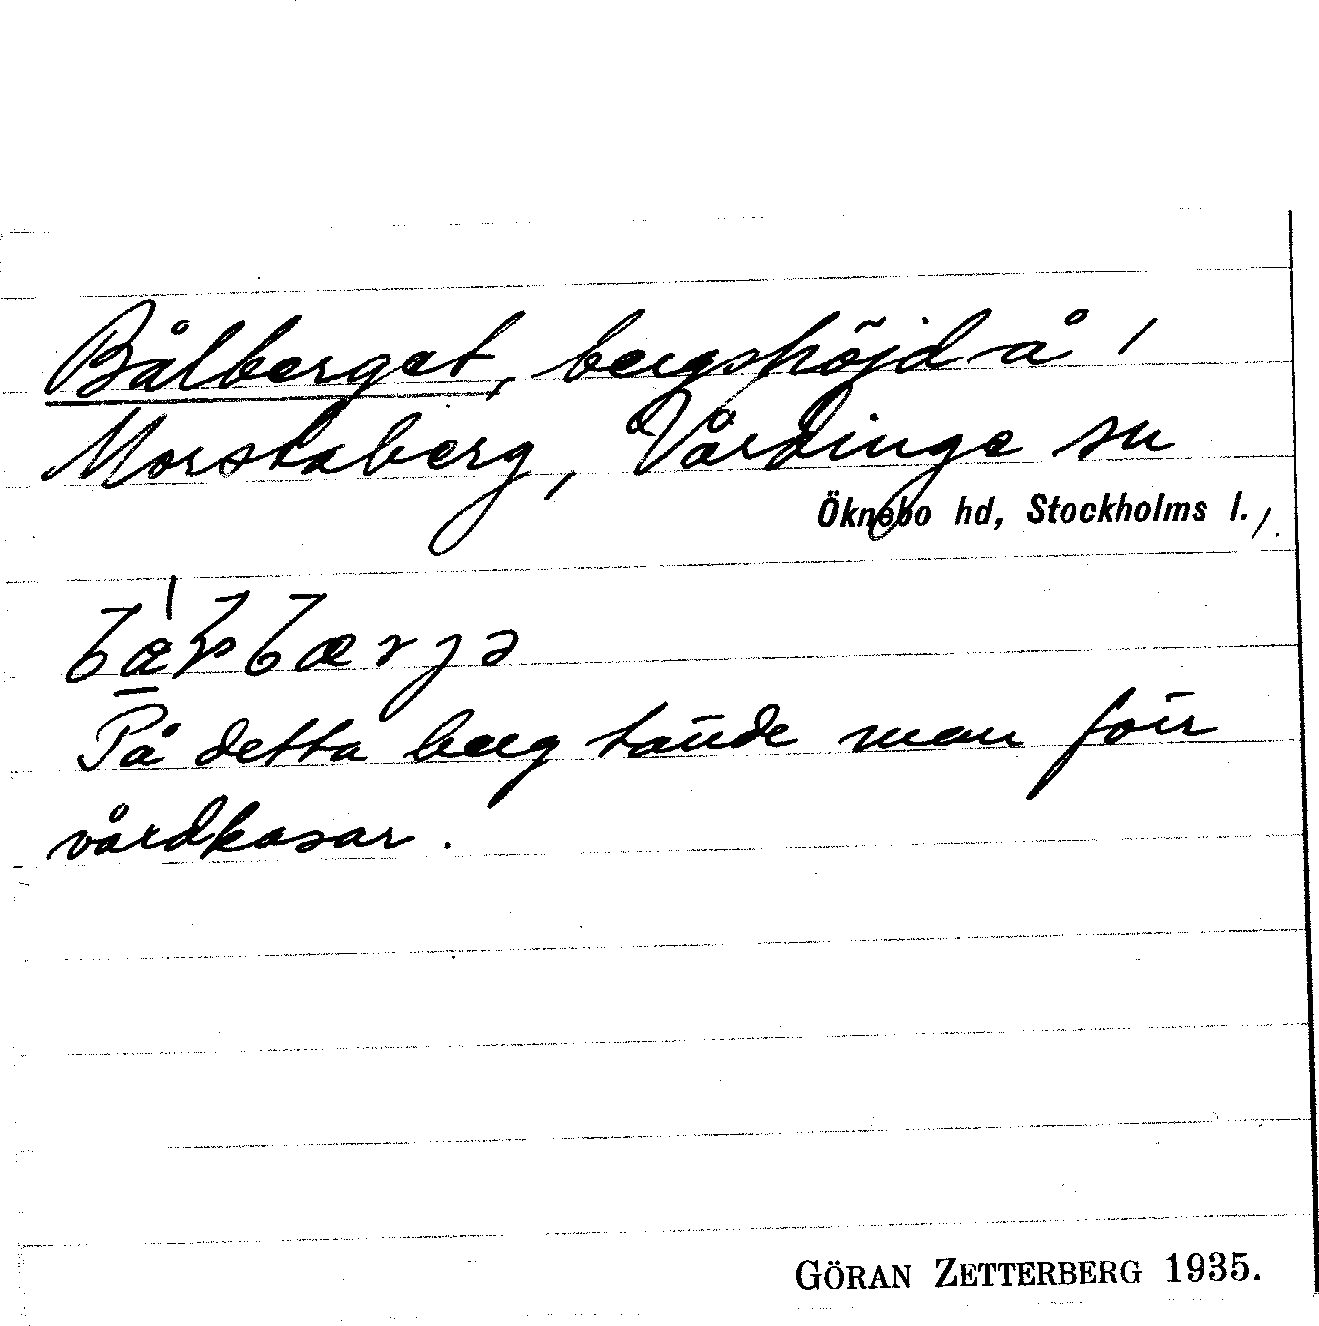 Bålberget, bergshöjd å /
Morstaberg, Vårdinge sn
Öknebo hd, Stockholms l. /.
På detta berg tände man förr
vårdkasar.
GÖRAN ZETTERBERG 1935.